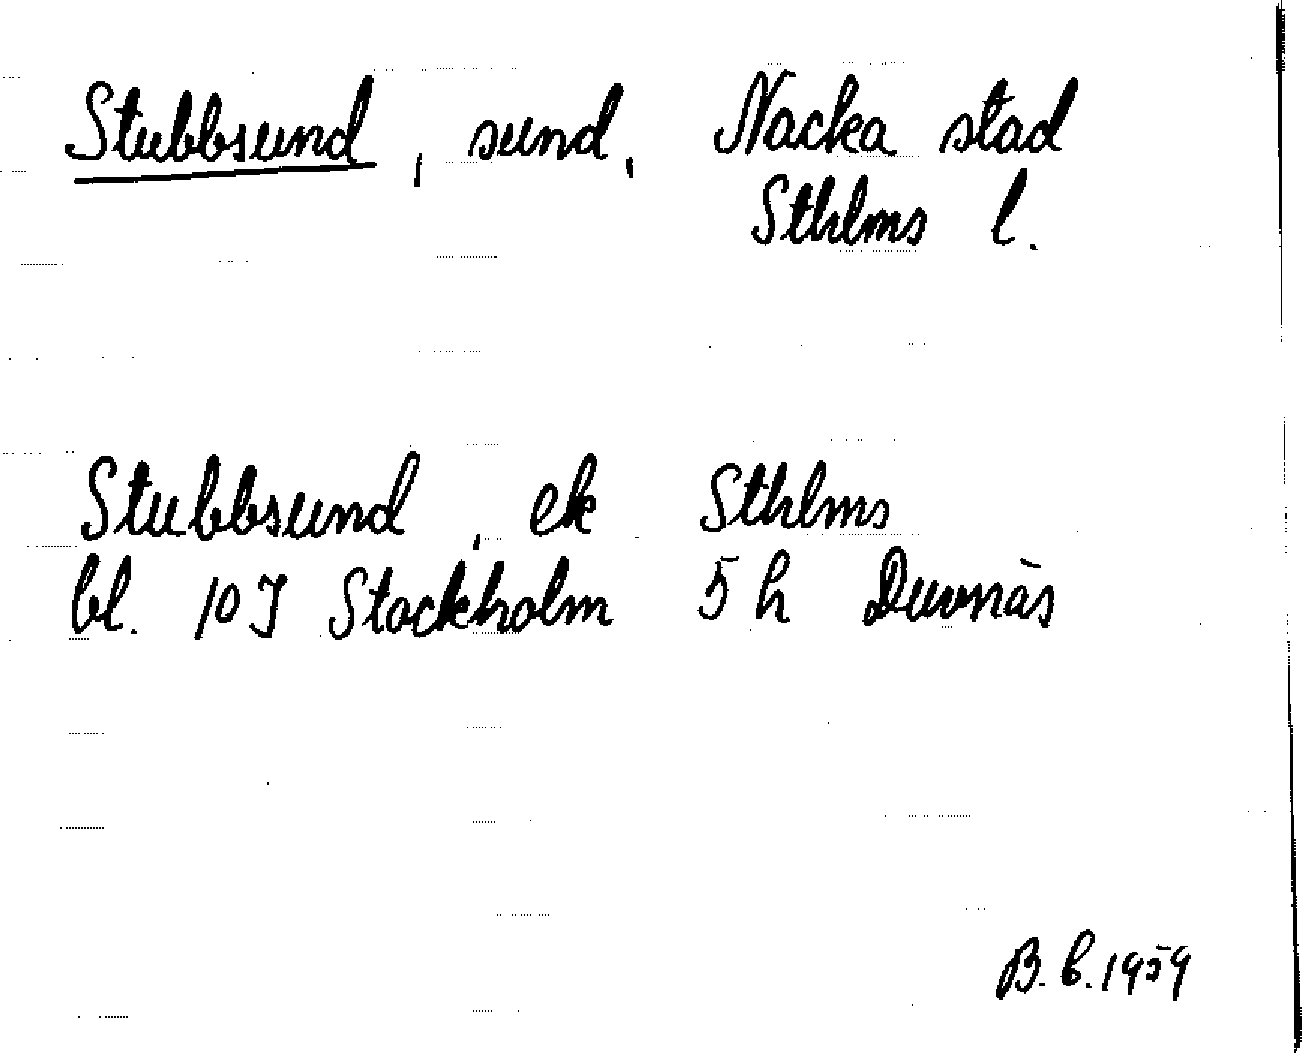 Stubbsund, sund, Nacka stad
Sthlms l.
Stubbsund, ek Sthlms
bl. 10 I Stockholm 5 h Duvnäs
B.b. 1959